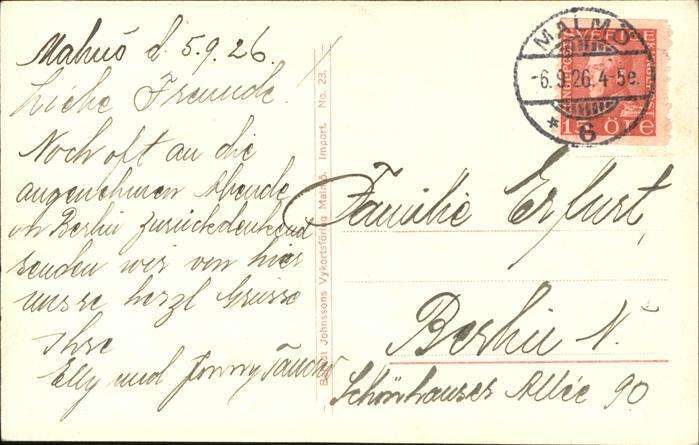 Malmö d. 5.9.26.
Liebe Freunde.
Noch oft an die
angenehmen Abende
in Berlin zurückdenkend
senden wir von hier
unsre herzl Grüsse
Ihre
Elly und Jonny
Bengt Johnssons Vykortsförlag Malmö. Import. No. 23.
MALMÖ
-6.9.26.4-5e.
* 6
SVERIGE
15 ÖRE
Familie Erfurt,
Berlin N.
Schönhauser Allée 90